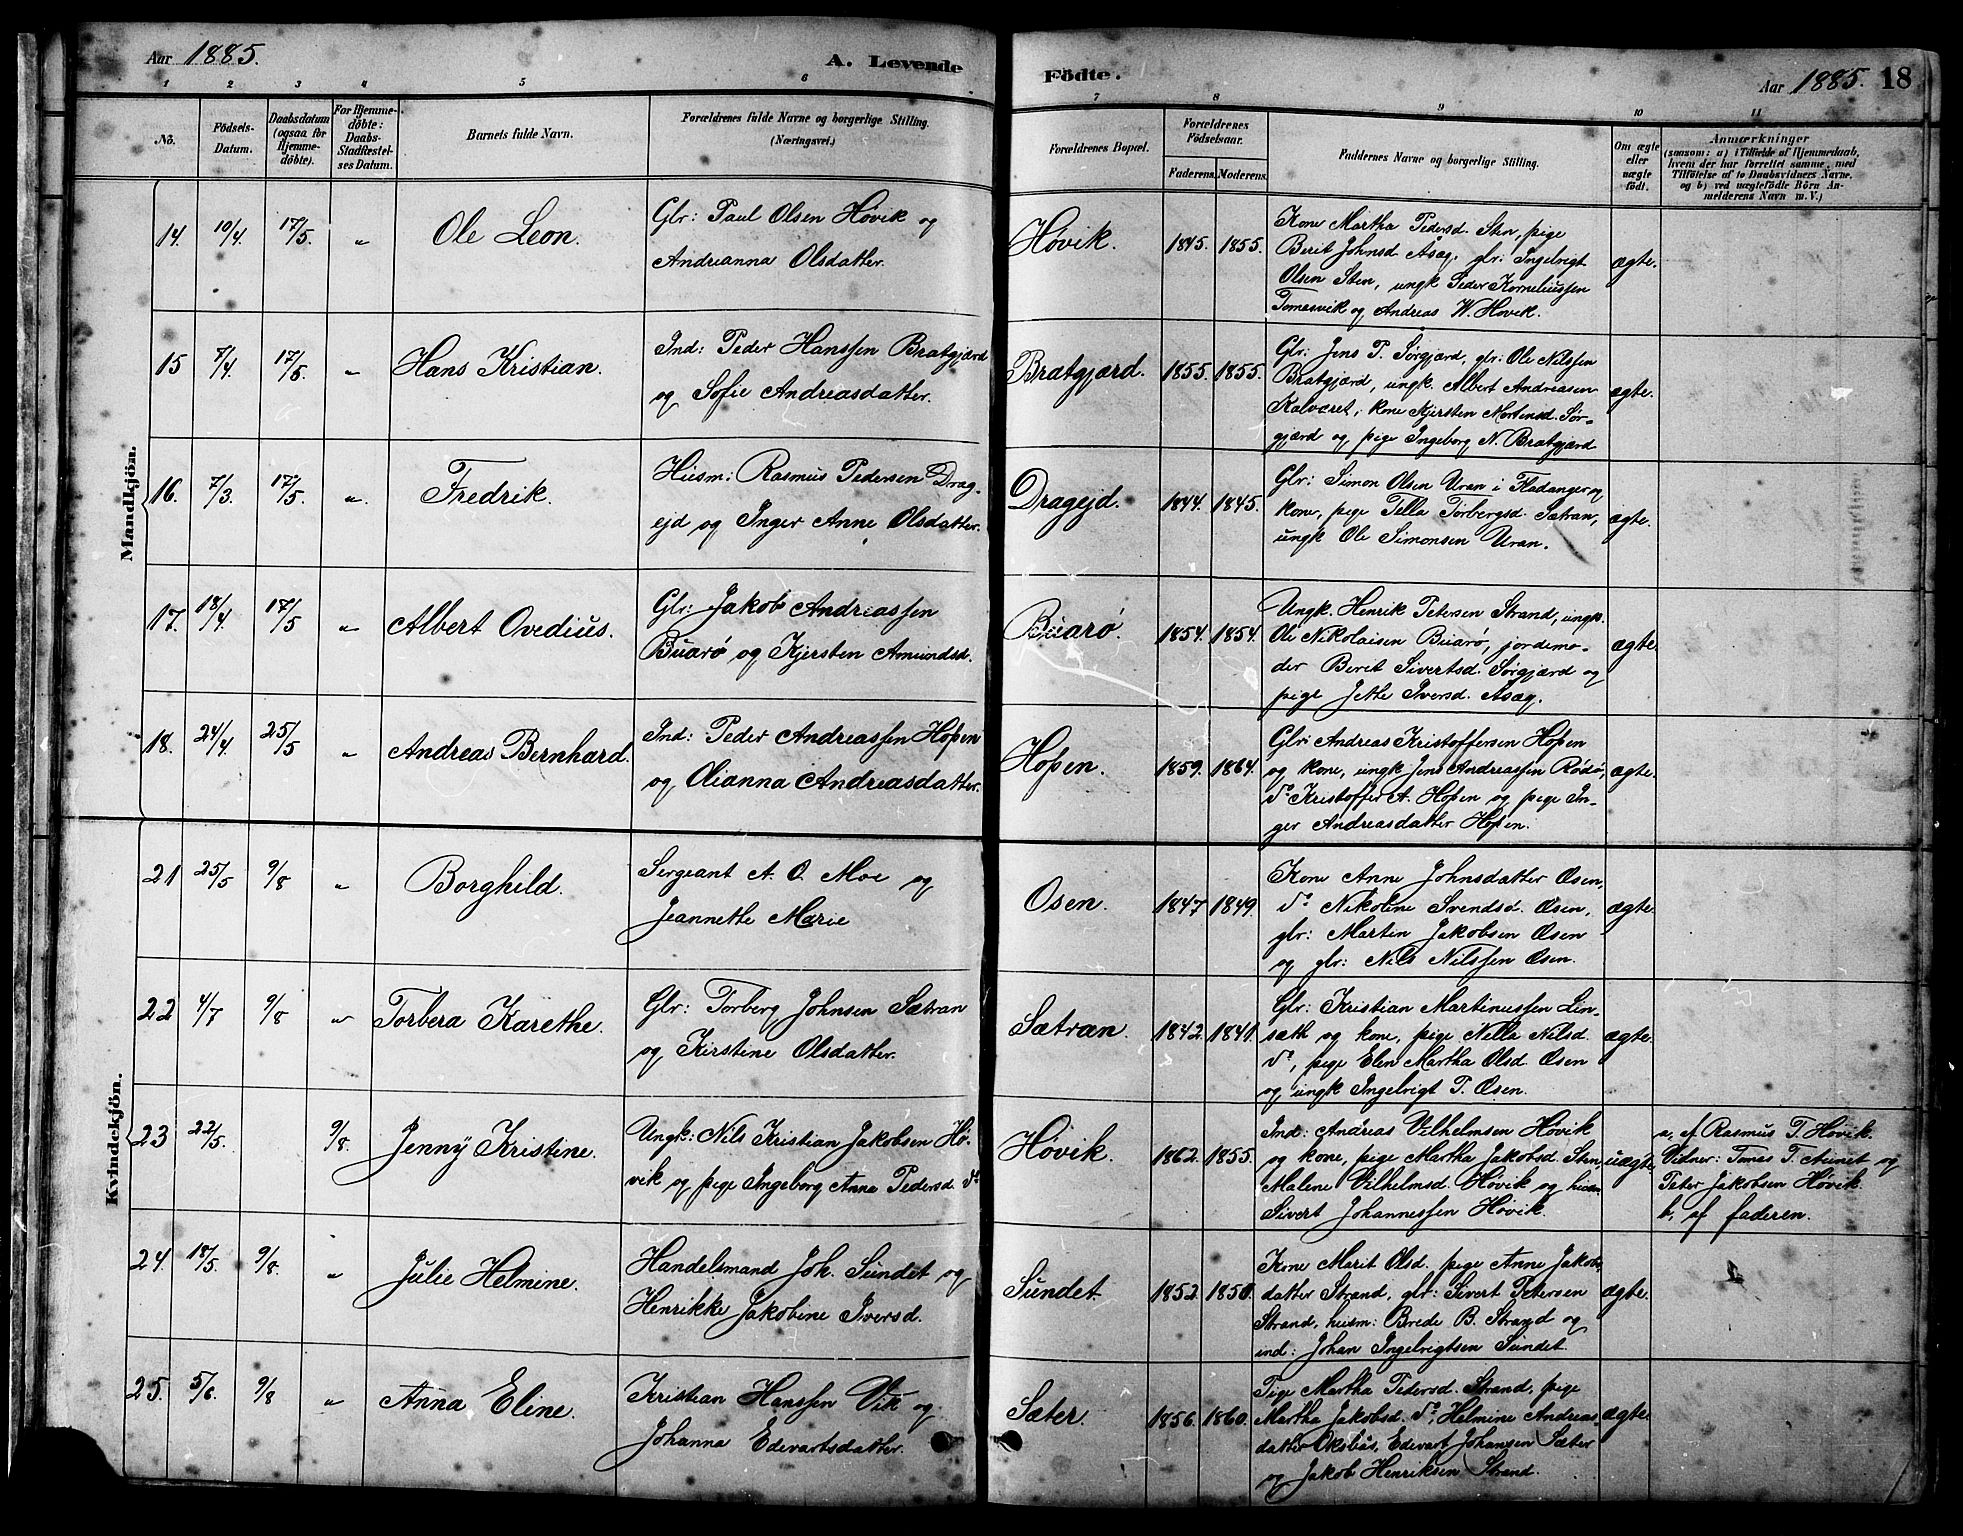 Aar 1885.
A. Levende
Födte.
Aar 1885. 18
1 2 3 4 5 6 7 8 9 10 11
No.
Födsels-Datum.
Daabsdatum (ogsaa for Hjemme-döbte).
For Hjemme-döbte: Daabs-Stadfæstelses Datum.
Barnets fulde Navn.
Forældrenes fulde Navne og borgerlige Stilling.
(Næringsvei.)
Forældrenes Bopæl.
Forældrenes Födselsaar.
Faderens. Moderens.
Faddernes Navne og borgerlige Stilling.
Om ægte eller uægte födt.
Anmærkninger
(saasom: a) i Tilfælde af Hjemmedaab,
hvem der har forrettet samme, med
Tilföielse af to Daabsvidners Navne,
og b) ved uægtefödte Börn An-
melderens Navn m. V.)
Mandkjön.
14. 10/4. 17/5. " Ole Leon.
Glr: Paul Olsen Hövik og
Andrianna Olsdatter.
Hövik. 1845. 1855.
Kone Martha Pedersd. Sten, pige
Berit Johnsd. Åsæg, glr: Ingelrigt
Olsen Sten, ungk Peder Korneliussen
Tomasvik og Andreas W. Hövik.
ægte.
15 7/4. 17/5. " Hans Kristian.
Ind: Peder Hanssen Bratgjærd
og Sofie Andreasdatter.
Bratgjærd. 1855. 1855.
Glr: Jens P. Sörgjærd, glr: Ole Nilssen
Bratgjærd, ungk. Albert Andreasen
Kalværet, kone Kjersten Mortensd. Sör-
gjærd og pige Ingeborg N. Bratgjærd
ægte.
16. 7/3. 17/5. " Fredrik.
Husm: Rasmus Pedersen Drag-
ejd og Inger Anne Olsdatter.
Dragejd. 1844. 1845.
Glr: Simon Olsen Uran i Fladanger og
kone, pige Tella Torbergsd. Sætran,
ungk Ole Simonsen Uran.
ægte.
17. 18/4. 17/5 " Albert Ovedius.
Glr: Jakob Andreassen
Buarö og Kjersten Amundsd.
Buarö. 1854. 1854.
Ungk. Henrik Petersen Strand, ungk.
Ole Nikolaisen Buarö, jordemo-
der Berit Sivertsd. Sörgjærd og
pige Jette Iversd. Åsæg.
ægte.
18. 24/4. 25/5 " Andreas Bernhard.
Ind: Peder Andreassen Hopen
og Olianna Andreasdatter.
Hopen. 1859. 1864.
Glr: Andreas Kristoffersen Hopen
og kone, ungk Jens Andreassen Rödö,
do Kristoffer A. Hopen og pige In-
ger Andreasdatter Hopen.
ægte.
Kvindekjön.
21 25/5 9/8 " Borghild.
Sergeant A. O. Moe og
Jeannette Marie
Osen. 1847 1849.
Kone Anne Johnsdatter Osen,
do Nikoline Svendsd. Osen,
glr: Martin Jakobsen Osen
og glr: Nils Nilssen Osen.
ægte.
22 4/7 9/8 " Torbera Karethe.
Glr: Torberg Johnsen Sætran
og Kirstine Olsdatter.
Sætran. 1842. 1841.
Glr: Kristian Martinussen Lin-
sæth og kone, pige Nella Nilsd.
do, pige Elen Martha Olsd Osen
og ungk Ingelrigt T. Osen.
ægte.
23 22/5. 9/8. Jenny Kristine.
Ungk: Nils Kristian Jakobsen Hö-
vik og pige Ingeborg Anna Pedersd. do
Hövik. 1862. 1855.
Ind: Andreas Vilhelmsen Hövik
og kone, pige Martha Jakobsd. Sten,
Malene Vilhelmsd. Hövik og husm
Sivert Johannessen Hövik.
uægte
a, af Rasmus T. Hövik.
Vidner: Tomas T. Aunet og
Peter Jakobsen Hövik.
b, af faderen.
24. 18/5. 9/8. " Julie Helmine.
Handelsmand Joh. Sundet og
Henrikke Jakobine Iversd.
Sundet. 1852. 1850.
Kone Marit Olsd. pige Anne Jakobs-
datter Strand, glr: Sivert Petersen
Strand, husm: Brede B. Strand og
ind: Johan Ingelrigtsen Sundet.
ægte.
25. 5/6. 9/8 " Anna Eline.
Kristian Hanssen Vik og
Johanna Edevartsdatter.
Sæter. 1856. 1860.
Pige Martha Pedersd. Strand, pige
Martha Jakobsd. do, Helmine Andreas-
datter Oksbås, Edevart Johansen Sæter
og Jakob Henriksen Strand.
ægte.